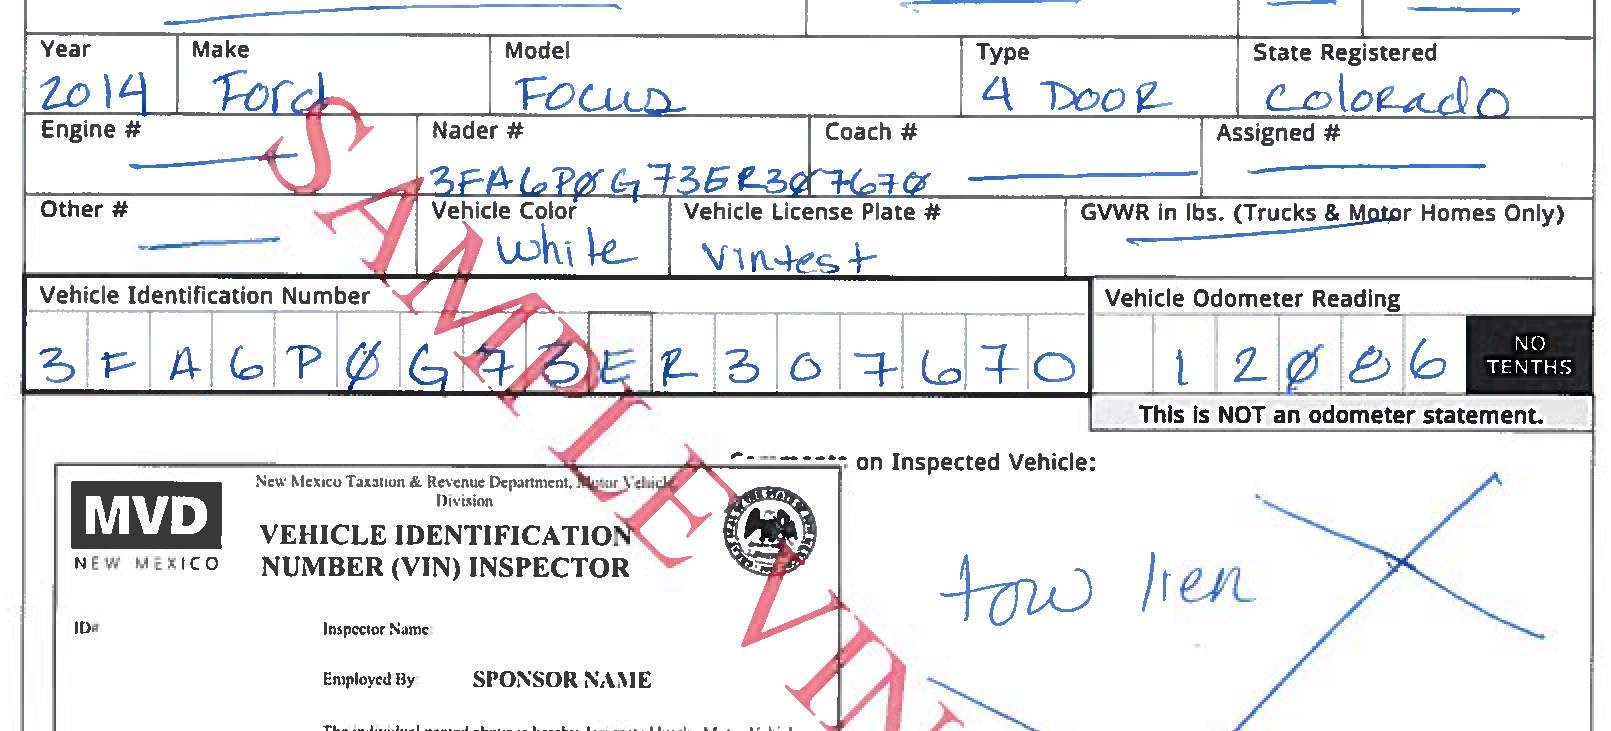 Year Make Model Type State Registered
2014 Ford Focus 4 DOOR Colorado
Engine # Nader # Coach # Assigned #
3FA6PØG73ER3Ø767Ø
Other # Vehicle Color Vehicle License Plate # GVWR in lbs. (Trucks & Motor Homes Only)
White Vintest
Vehicle Identification Number Vehicle Odometer Reading
3FA6PØG73ER307670 12Ø86 NO TENTHS
This is NOT an odometer statement.
on Inspected Vehicle:
tow lien
MVD
NEW MEXICO
New Mexico Taxation & Revenue Department, Motor Vehicle
Division
VEHICLE IDENTIFICATION
NUMBER (VIN) INSPECTOR
ID#
Inspector Name
Employed By SPONSOR NAME
SAMPLE VIN